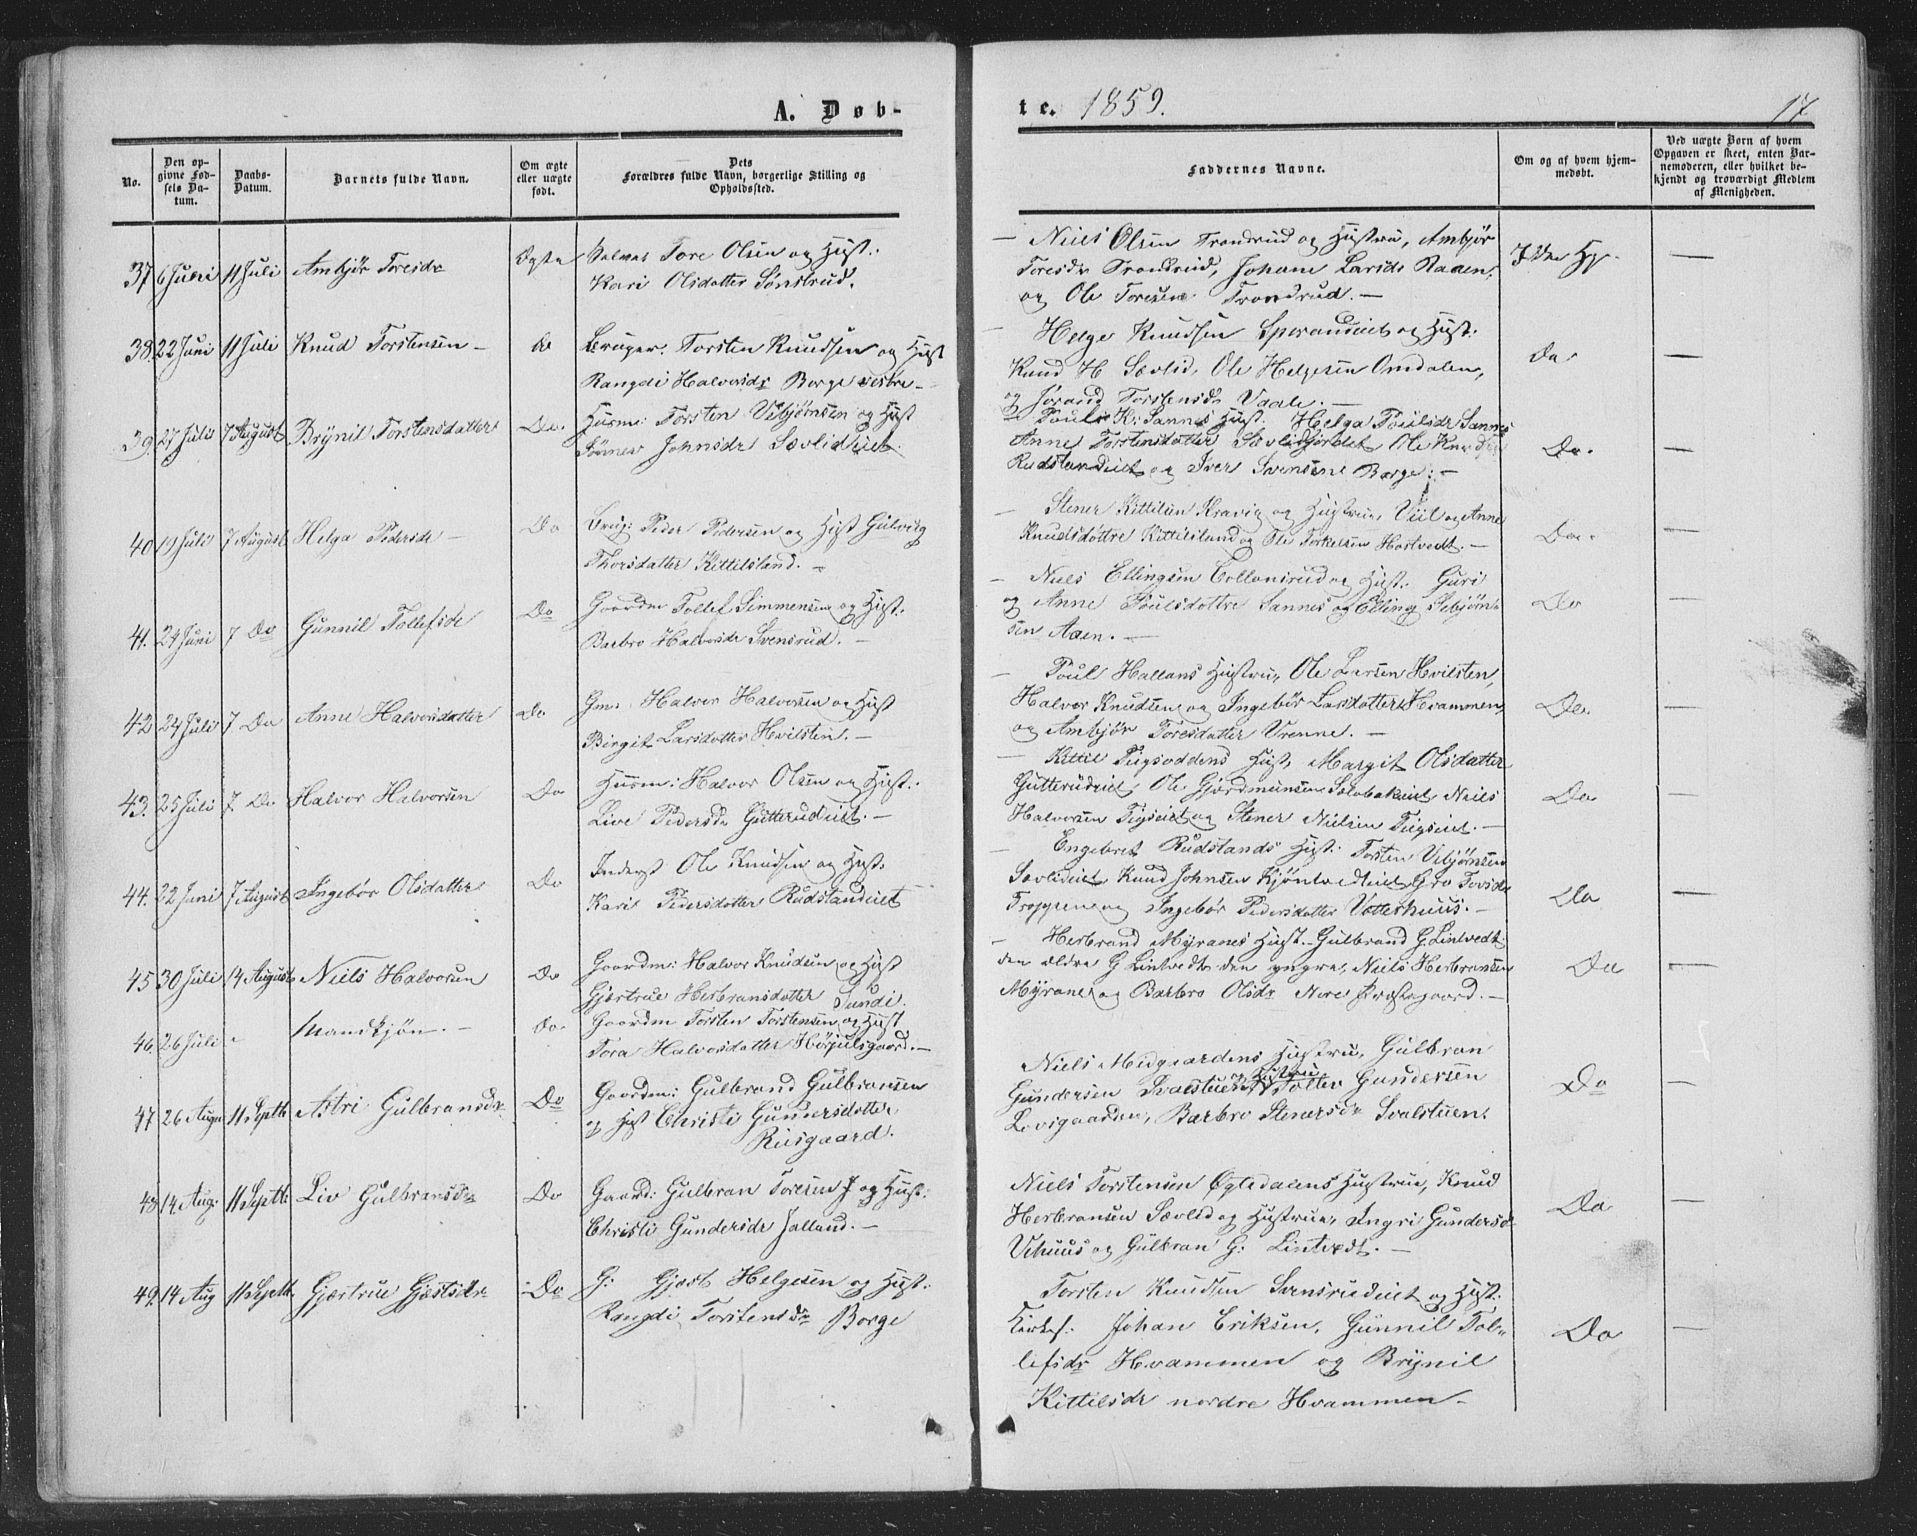 A. Døb-
te. 1859.
17
No.
Den op-
givne Fød-
sels Da-
tum.
Daabs-
Datum.
Barnets fulde Navn.
Om ægte
eller uægte
født.
Dets
Forældres fulde Navn, borgerlige Stilling og
Opholdssted.
Faddernes Navne.
Om og af hvem hjem-
medøbt.
Ved uægte Børn af hvem
Opgaven er skeet, enten Bar-
nemoderen, eller hvilket be-
kjendt og troværdigt Medlem
af Menigheden.
37 6 Juni 11 Juli Ambjør Toresdr Ægte
Tore Olsen og Hust:
Kari Olsdatter Sønstrud.
— Niels Olsen Trondrud og Hustru, Ambjør
Toresdr Trondrud, Johane Larsdr Raaen,
og Ole Toresen Trondrud. —
38. 22 Juni 11 Juli Knud Torstensen — do
Bruger. Torsten Knudsen og Hust
Rangdi Halvorsdr Borge vestre —
— Helge Knudsen Speraneiet og Hust:
Knud H Sævlid, Ole Helgesen Omdalen,
og Jørand Torstensdr Vaale. —
Do.
39. 27 Juli 7 August Brynil Torstensdatter Do.
Husm: Torsten Vebjørnsen og Hust
Gunner Johnsdr Sævlideiet.
Pouls K: Sannes Hust. Helga Poulsdr Sannes
Anne Torstensdatter Sævlidjordet Ole Knudsen
Rudstandeiet og Iver Svensene Borge: —
Do.
40 19 Juli 7 August Helga Pedersdr — Do
Brug: Peder Pedersen og Hust Gulvig
Thorsdatter Kittilsland. —
— Stener Kittilsen Kravig og Hustrue, Viil og Anne
Knudsdøttre Kittilsland og Ole Torkelsen Hostvedt. —
Do.
41. 24 Juni 7 Do Gunnil Tollefsdr Do
Gaardm Tollef Simmensen og Hust.
Barbro Halvorsdr Svensrud. —
— Niels Ellingsen Tollonsrud og Hust: Guri
og Anne Poulsdøttre Sannes og Elling Stebjørn-
sen Aaen. —
Do
42 24 Juli 7 Do Anne Halvorsdatter Do
Gm: Halvor Halvorsen og Hust
Birgit Larsdatter Hvilsten. —
Poul Hallans Hustru, Ole Larsen Hvilsten,
Halvor Knudsen og Ingebør Larsdatter Hvammen,
og Ambjør Toresdatter Vrenne. —
Do.
43. 25 Juli 7 Do Halvor Halvorsen Do
Husm: Halvor Olsen og Hust:
Live Pedersdr Gutterudeiet. —
— Kittil Tugsoddens Hust, Margit Olsdatter
Gutterudeiet, Ole Gjordmunsen Solobakeiet, Niels
Halvorsen Tigseiet og Stener Nielsen Tugseiet. —
Do
44. 22 Juni 7 August Ingebør Olsdatter Do
Inderst Ole Knudsen og Hust.
Kari Pedersdatter Rudstandeiet
— Engebret Rudstands Hust: Torsten Vebjørnsen
Sævlideiet, Knud Johnsen Kjøntvedteiet, Gro Tovsdr
Froggene og Ingebør Pedersdatter Vetterhuus. —
Do
45 30 Juli 14 August Niels Halvorsen Do
Gaardm: Halvor Knudsen og Hust
Gjertrue Herbransdatter Sundi.
— Herbrand Myranes Hust. Gulbrand G. Lintvedt
den ældre G Lintvedt den yngre, Niels Herbransen
Myrane og Barbro Olsdr Nore Præstegaard. —
Do
46. 26 Juli - Mandkjøn. — do.
Gaardm Torsten Torstensen og Hust
Tora Halvorsdatter Hørjulsgaard. —
47 26 Aug 11 Septb Astri Gulbransdr Do
Gaardm: Gulbrand Gulbransen
og Hust Christi Gundersdatter
Riisgaard.
Niels Medgaardens Hustru, Gulbran
Gundersen Svalstuen og Hustru, Tolter Gundersen
Lovigaarden, Barbro Stenersdr Svalstuen.
Do
48 14 Aug: 11 Septb: Liv Gulbransdr Do
Gaard: Gulbran Toresen J og Hust:
Christi Gundersdr Jalland. —
Niels Torstensen Øgtedalens Hustrue, Knud
Herbransen Sævled og Hustrue, Ingri Gundersdr
Vehuus og Gulbran G: Lintvedt. —
Do
49. 14 Aug 11 Septb. Gjertrue Gjestsdr Do
G: Gjest Helgesen og Hust:
Rangdi Torstensdr Borge
Torsten Knudsen Svensrudeiet og Hust:
Johan Eriksen, Gunnil Tol-
lefsdr Hvammen og Brynil
Kittilsdr nordre Hvammen —
Do